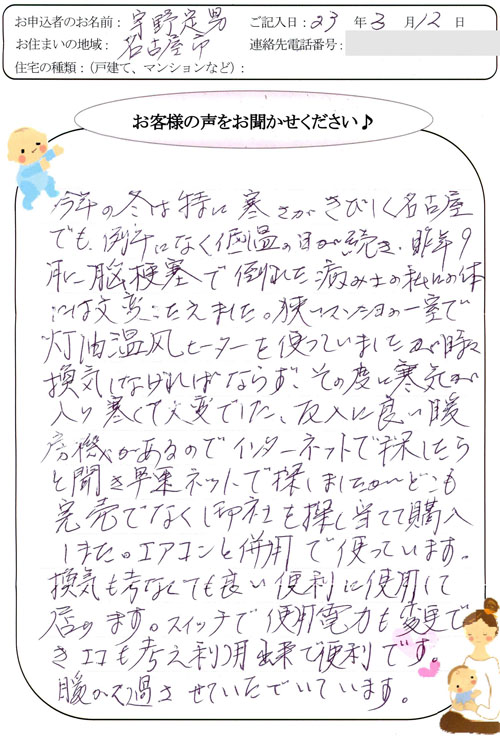 お申込者のお名前：宇野定男 ご記入日：23 年 3 月 12 日
お住まいの地域：名古屋市 連絡先電話番号：
住宅の種類：（戸建て、マンションなど）：
お客様の声をお聞かせください♪
今年の冬は特に寒さがきびしく名古屋
でも、例年になく低温の日が続き、昨年9
月に脳梗塞で倒れた病み上の私の体
には大変こたえました。狭いマンションの一室で
灯油温风ヒーターを使っていましたが時々
換気しなければならず、その度に寒気が
入り寒くて大変でした、友人に良い暖
房機があるのでインターネットで探したら
と聞き早速ネットで探しましたがどこも
完売でなく御社を探し当てて購入
しました。エアコンと併用で使っています。
換気も考なくても良い便利に使用して
居ります。スイッチで使用電力も変更で
きエコも考え利用出来て便利です。
暖かく過させていただいています。